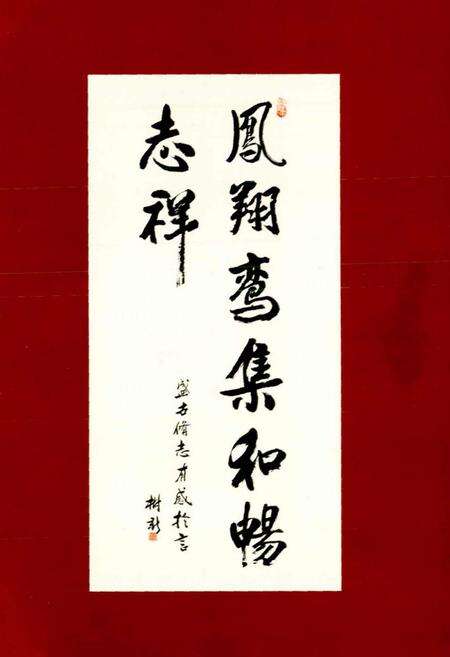 鳳翔鸾集和暢
志祥
盛世修志有感於言
樹新